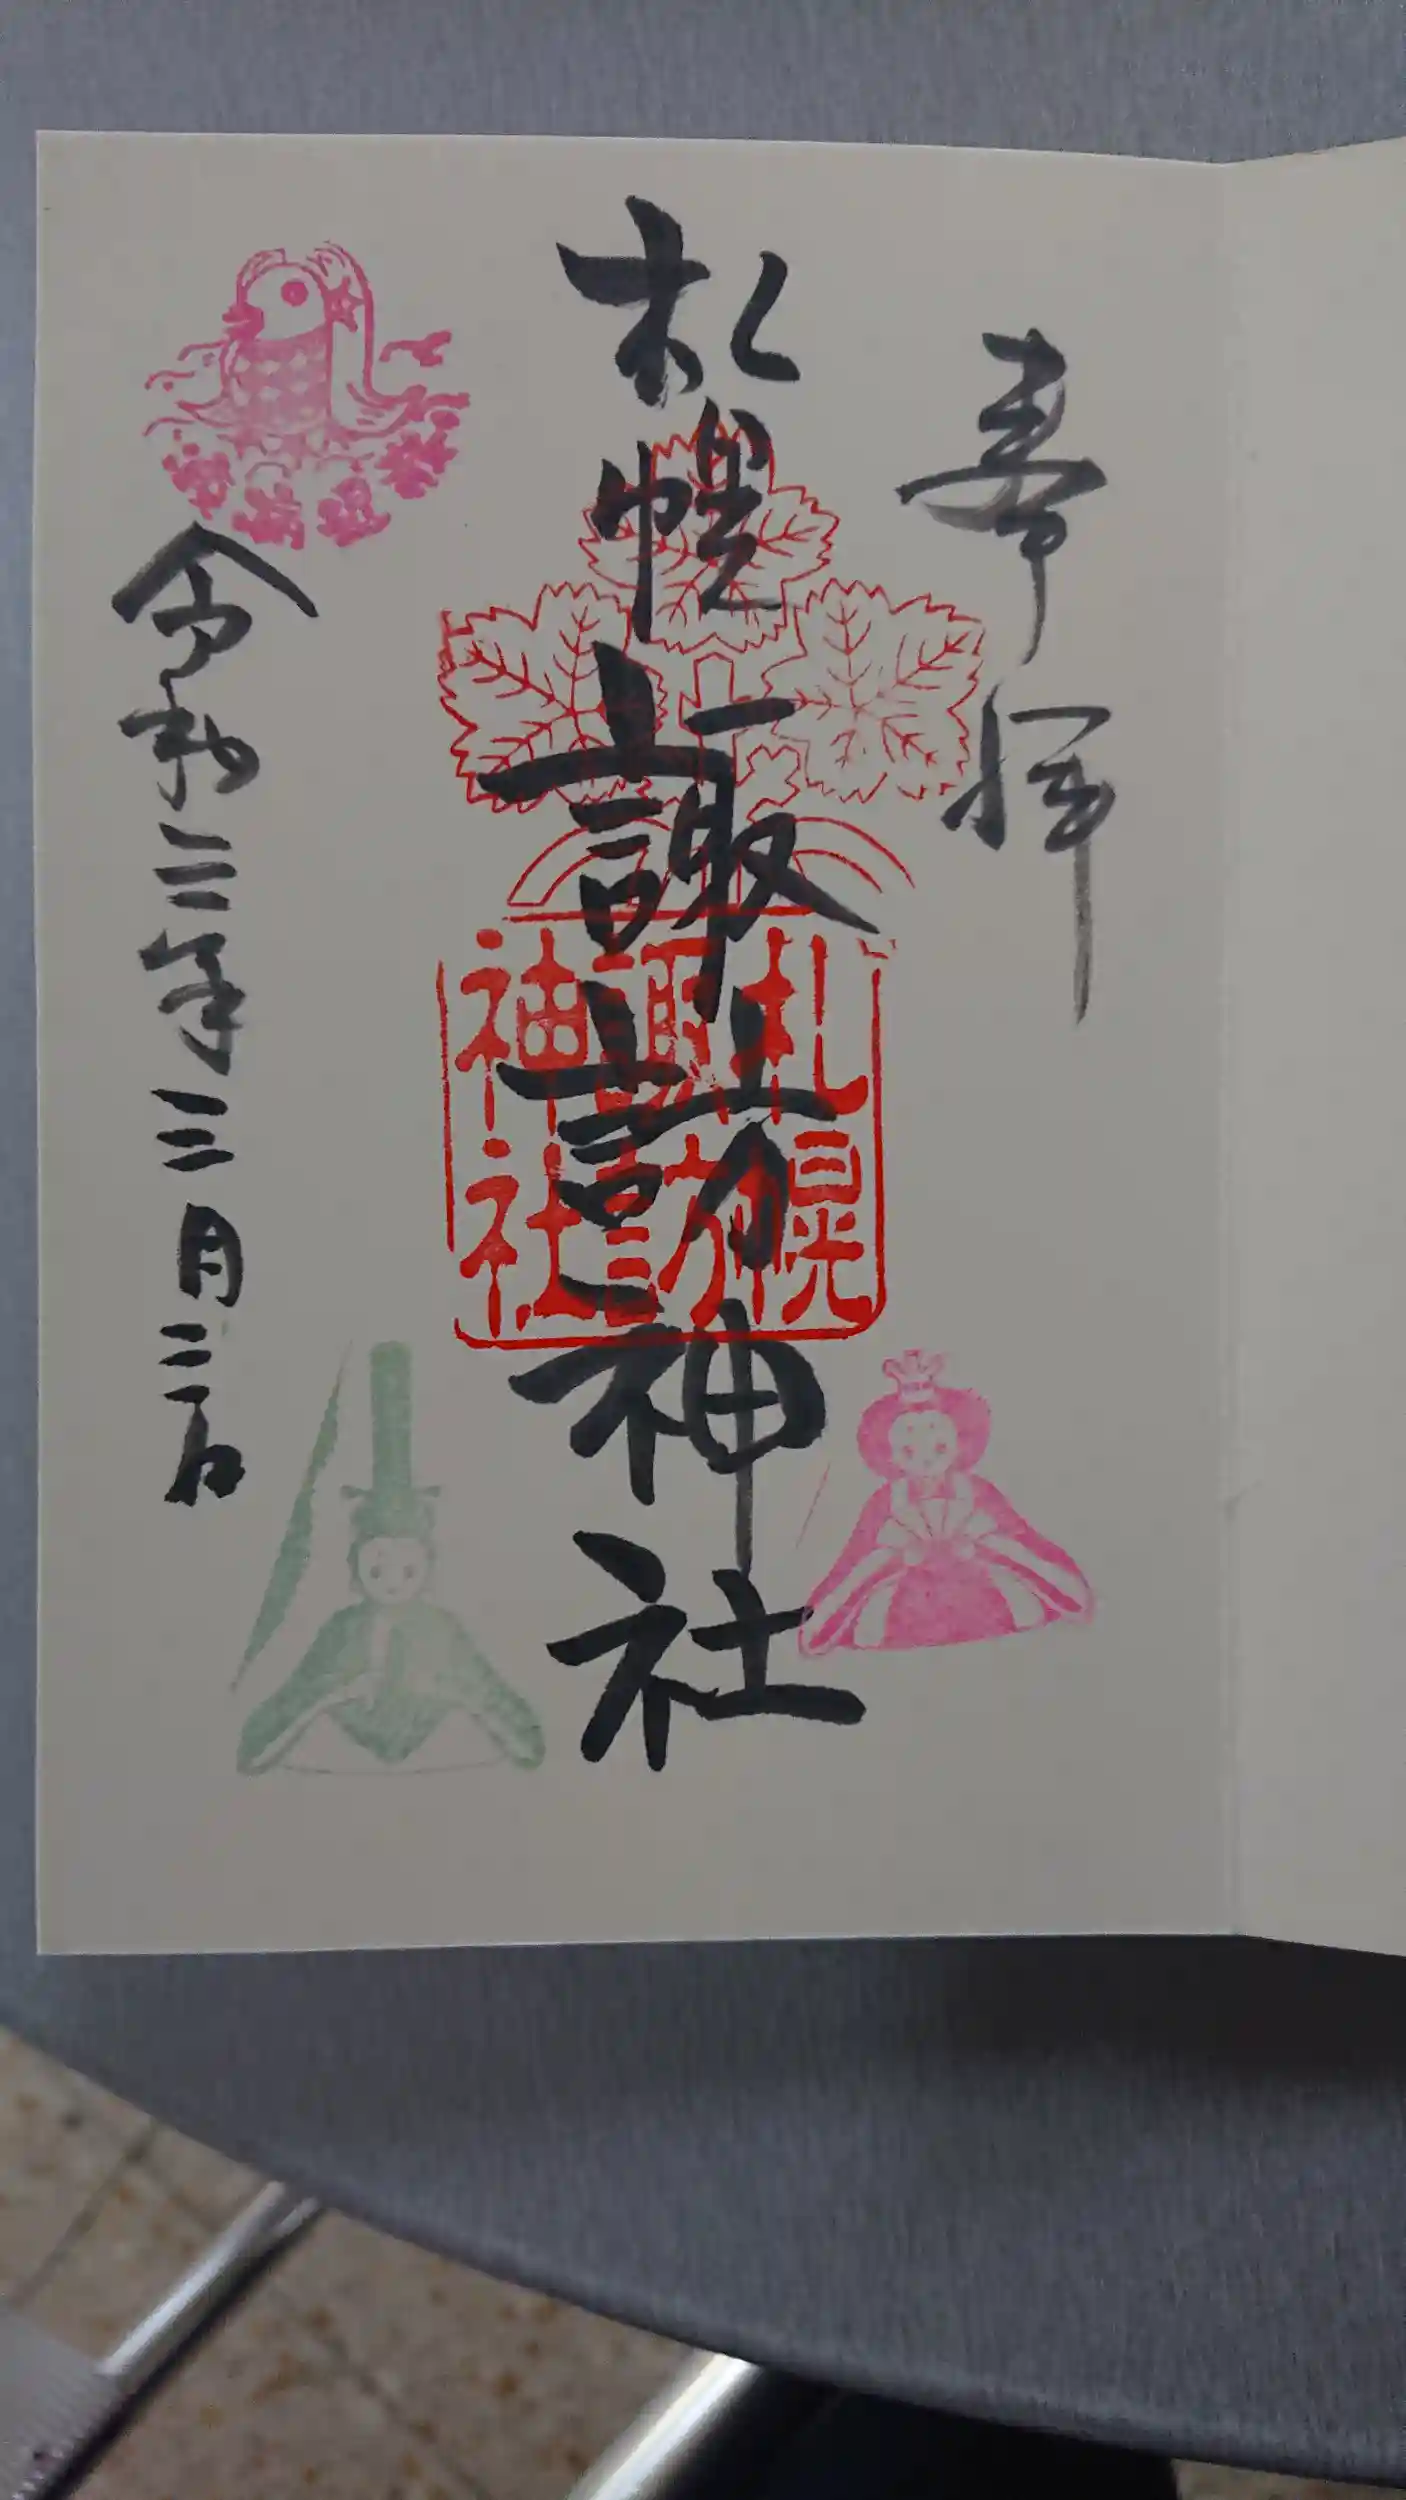 奉拝
札幌諏訪神社
札幌
諏訪
神社
令和三年三月三日